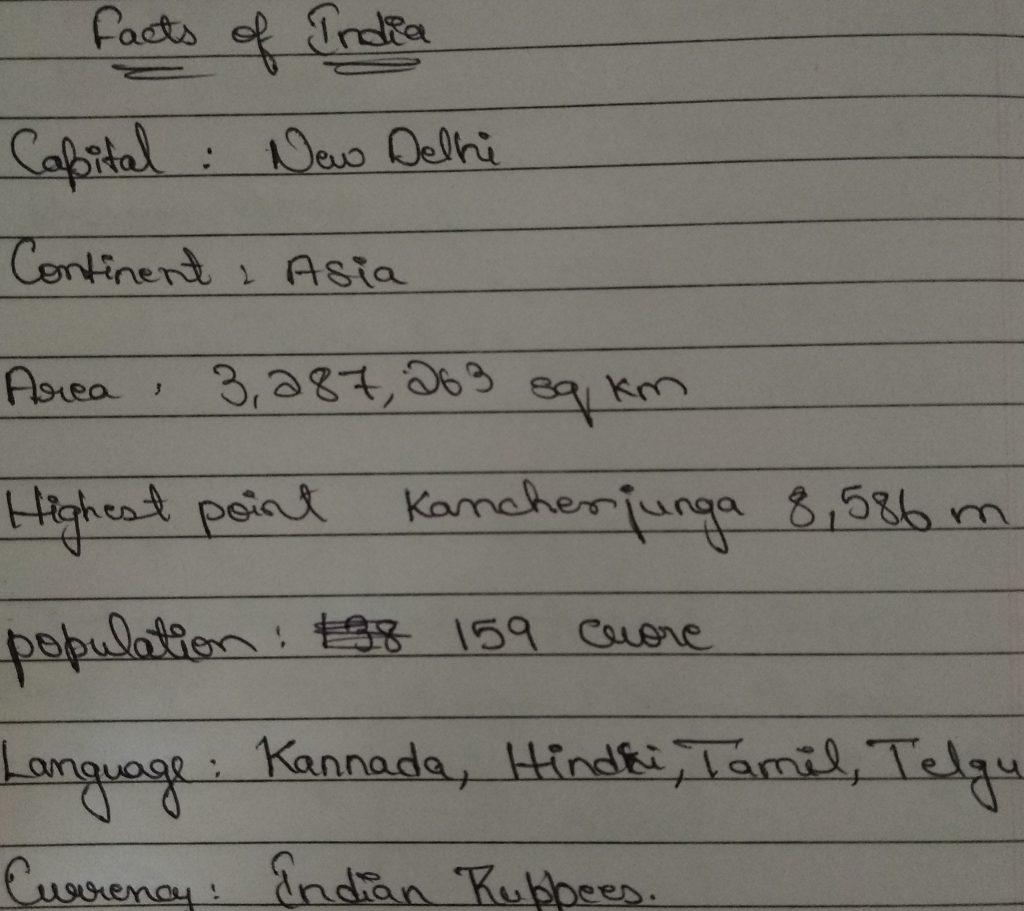 Facts of India
Capital : New Delhi
Continent : Asia
Area : 3,287,263 sq km
Highest point Kancherjunga 8,586 m
population : 159 crore
Language : Kannada, Hindi, Tamil, Telgu
Currency : Indian Ruppees.